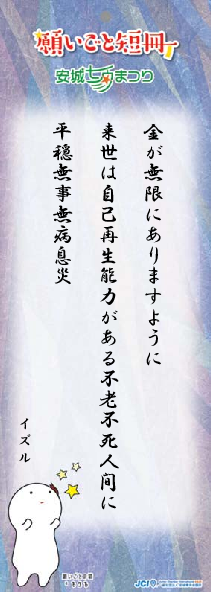 願いごと短冊
安城七夕まつり
金が無限にありますように
来世は自己再生能力がある不老不死人間に
平穏無事無病息災
イズル
願いごと短冊
JCI